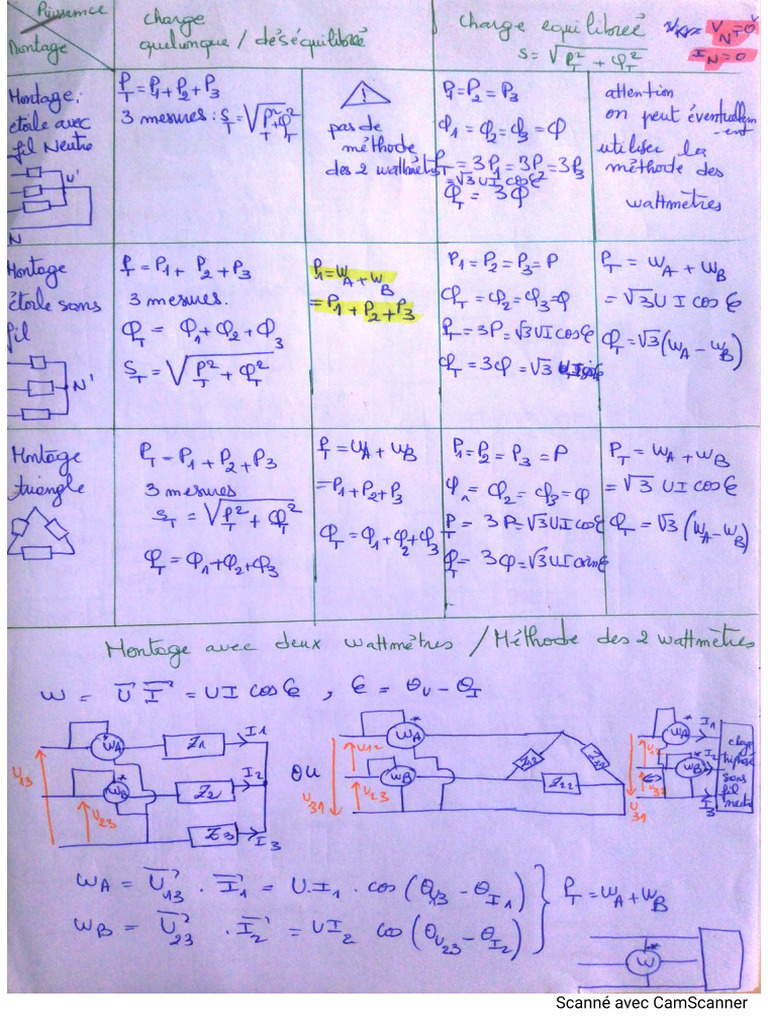 Puissance
Montage
charge
quelconque / déséquilibrée
charge equilibrée
S = √P_T² + Q_T²
V_N = 0
I_N = 0
Montage:
etoile avec
fil Neutre
N'
N
P_T = P1 + P2 + P3
3 mesures : S_T = √P_T² + Q_T²
!
pas de
méthode
des 2 wattmèt
P1 = P2 = P3
Q1 = Q2 = Q3 = Q
P_T = 3P1 = 3P2 = 3P3
= √3 UI cos φ
Q_T = 3Q
attention
on peut éventuellem
-ent
utiliser la
méthode des
wattmètres
Montage
étoile sans
fil
N'
P_T = P1 + P2 + P3
3 mesures.
Q_T = Q1 + Q2 + Q3
S_T = √P_T² + Q_T²
P1 = W_A + W_B
= P1 + P2 + P3
P1 = P2 = P3 = P
Q_T = Q2 = Q3 = Q
P_T = 3P = √3 UI cos φ
Q_T = 3Q = √3
P_T = W_A + W_B
= √3 U I cos φ
Q_T = √3 (W_A - W_B)
Montage
triangle
P_T = P1 + P2 + P3
3 mesures
S_T = √P_T² + Q_T²
Q_T = Q1 + Q2 + Q3
P_T = W_A + W_B
= P1 + P2 + P3
Q_T = Q1 + Q2 + Q3
P1 = P2 = P3 = P
Q1 = Q2 = Q3 = Q
P_T = 3P = √3 UI cos φ
Q_T = 3Q = √3 UI sin φ
P_T = W_A + W_B
= √3 UI cos φ
Q_T = √3 (W_A - W_B)
Montage avec deux wattmètres / Méthode des 2 wattmètres
W = U⃗ I⃗ = UI cos φ , φ = θ_U - θ_I
U13
U23
*
W_A
*
W_B
Z1
Z2
Z3
I1
I2
I3
OU
U12
U23
U31
*
W_A
*
W_B
U31
*
W_A
*
W_B
I1
I2
I3
sans
fil
W_A = U⃗13 . I⃗1 = U.I1 . cos (θ_U13 - θ_I1)
W_B = U⃗23 . I⃗2 = UI2 cos (θ_U23 - θ_I2)
P_T = W_A + W_B
*
W
Scanné avec CamScanner